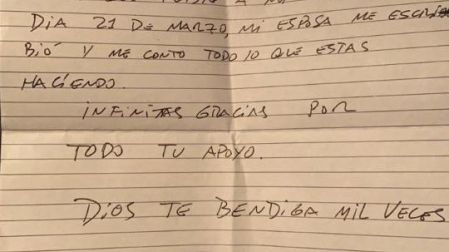 DIA 21 DE MARZO, MI ESPOSA ME ESCRI
BIÓ Y ME CONTO TODO LO QUE ESTAS
HACIENDO.
INFINITAS GRACIAS POR
TODO TU APOYO.
DIOS TE BENDIGA MIL VECES